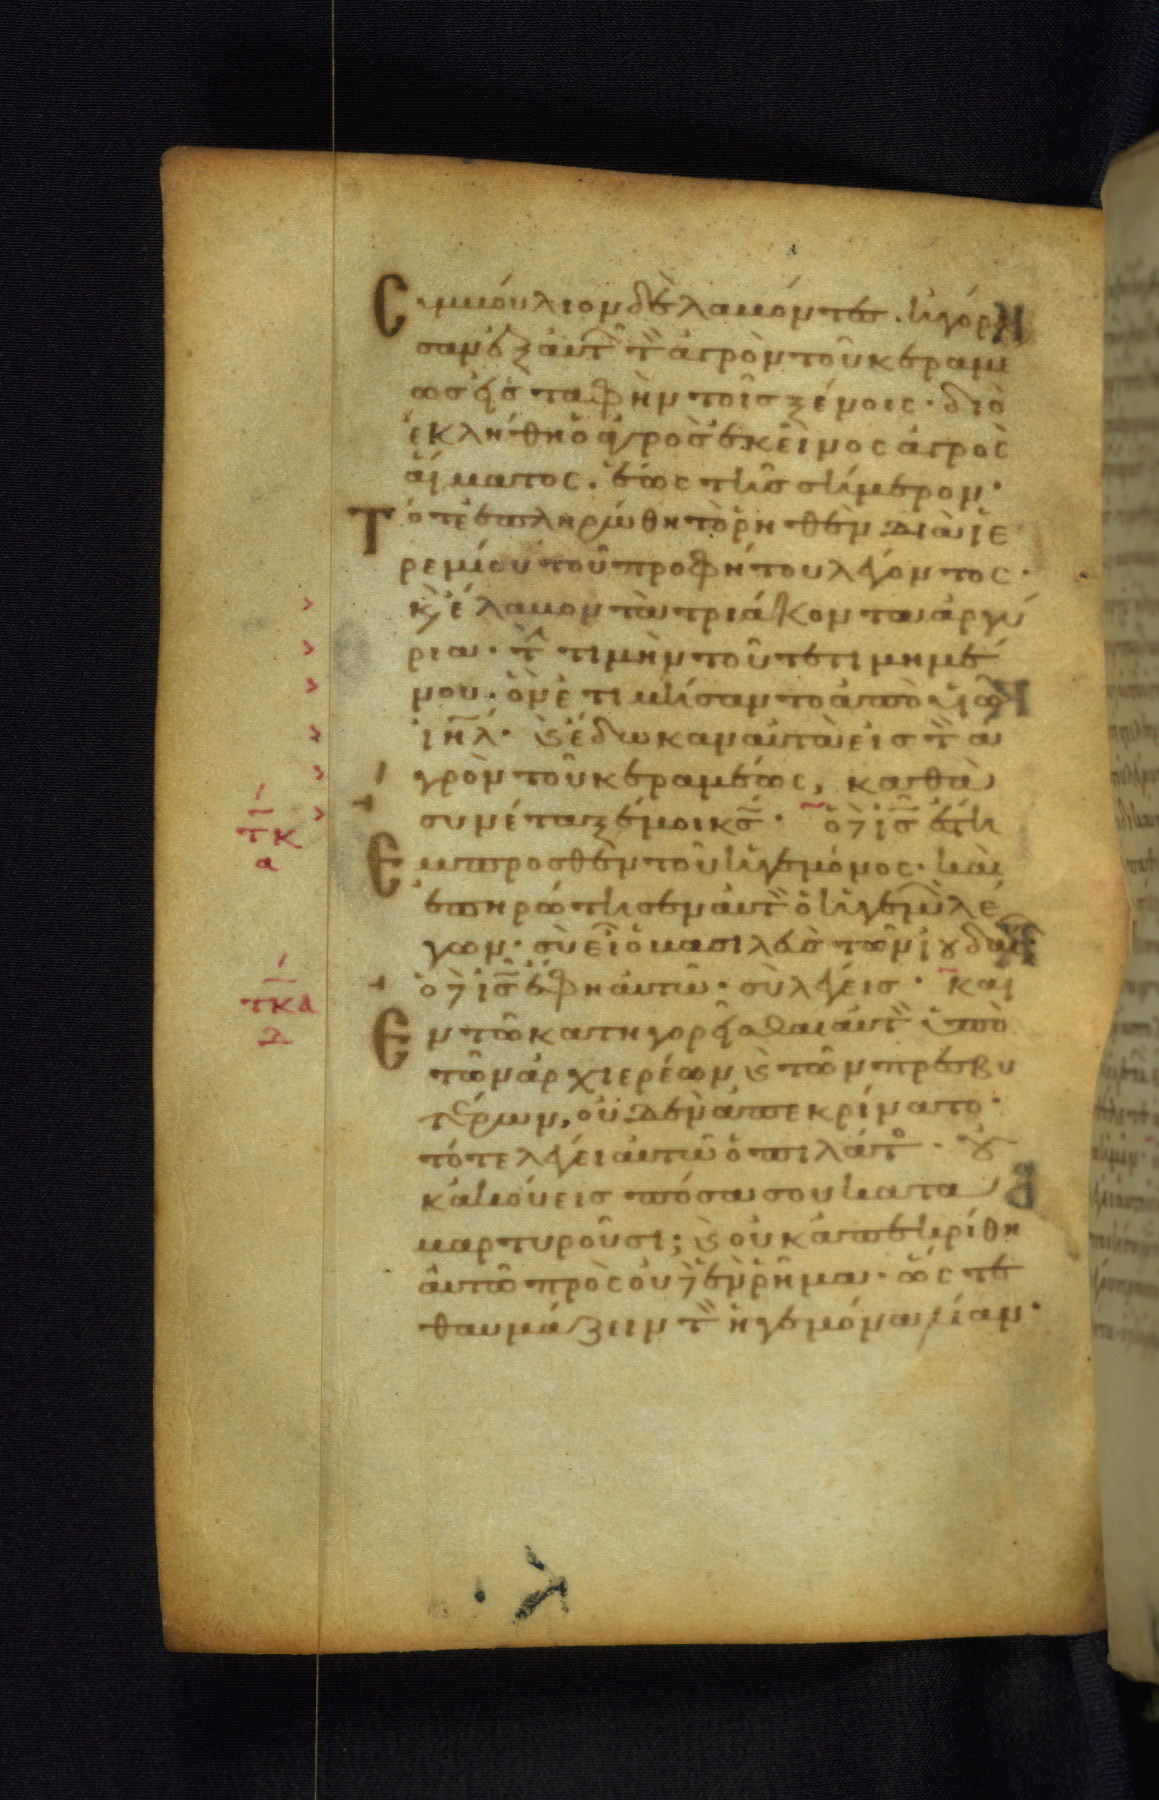 Συμβούλιον δὲ λαβόντες· ἠγόρα
σαν ἐξ αυτῶν τὸν ἀγρὸν τοῦ κεραμέ
ως εἰς ταφὴν τοῖς ξένοις· διὸ
ἐκλήθη ὁ ἀγρὸς ἐκεῖνος ἀγρὸς
αἵματος· ἕως τῆς σήμερον·
Τότε ἐπληρώθη τὸ ρηθὲν διὰ ἱε
ρεμίου τοῦ προφήτου λέγοντος·
κ(αὶ) ἔλαβον τὰ τριάκοντα ἀργύ
ρια· τὴν τιμὴν τοῦ τετιμημέ
νου· ὃν ἐτιμήσαντο ἀπὸ υἱῶν
ιηλ· κ(αὶ) ἔδωκαν αὐτὰ εἰς τὸν ἀ
γρὸν τοῦ κεραμέως, καθὰ
συνέταξέ μοι κς· ὁ δὲ ις ἔστη
τιη
τκ
α
Ἔμπροσθεν τοῦ ἡγεμόνος· καὶ
ἐπηρώτησεν αὐτὸν ὁ ἡγεμὼν λέ
γων· σὺ εἶ ὁ βασιλεὺς τῶν ἰουδαίων·
ὁ δὲ ις ἔφη αὐτῶ· σὺ λέγεις· καὶ
τκα
δ
Ἐν τῶ κατηγορεῖσθαι αὐτὸν ὑπὸ
τῶν ἀρχιερέων κ(αὶ) τῶν πρεσβυ
τέρων, οὐδὲν ἀπεκρίνατο·
τότε λέγει αὐτῶ ὁ πιλάτος· οὐ
κ ἀκούεις πόσα σου κατα
μαρτυροῦσι; κ(αὶ) οὐκ ἀπεκρίθη
αὐτῶ πρὸς οὐδὲ ἓν ρῆμα· ὥστε
θαυμάζειν τὸν ἡγεμόνα λίαν·